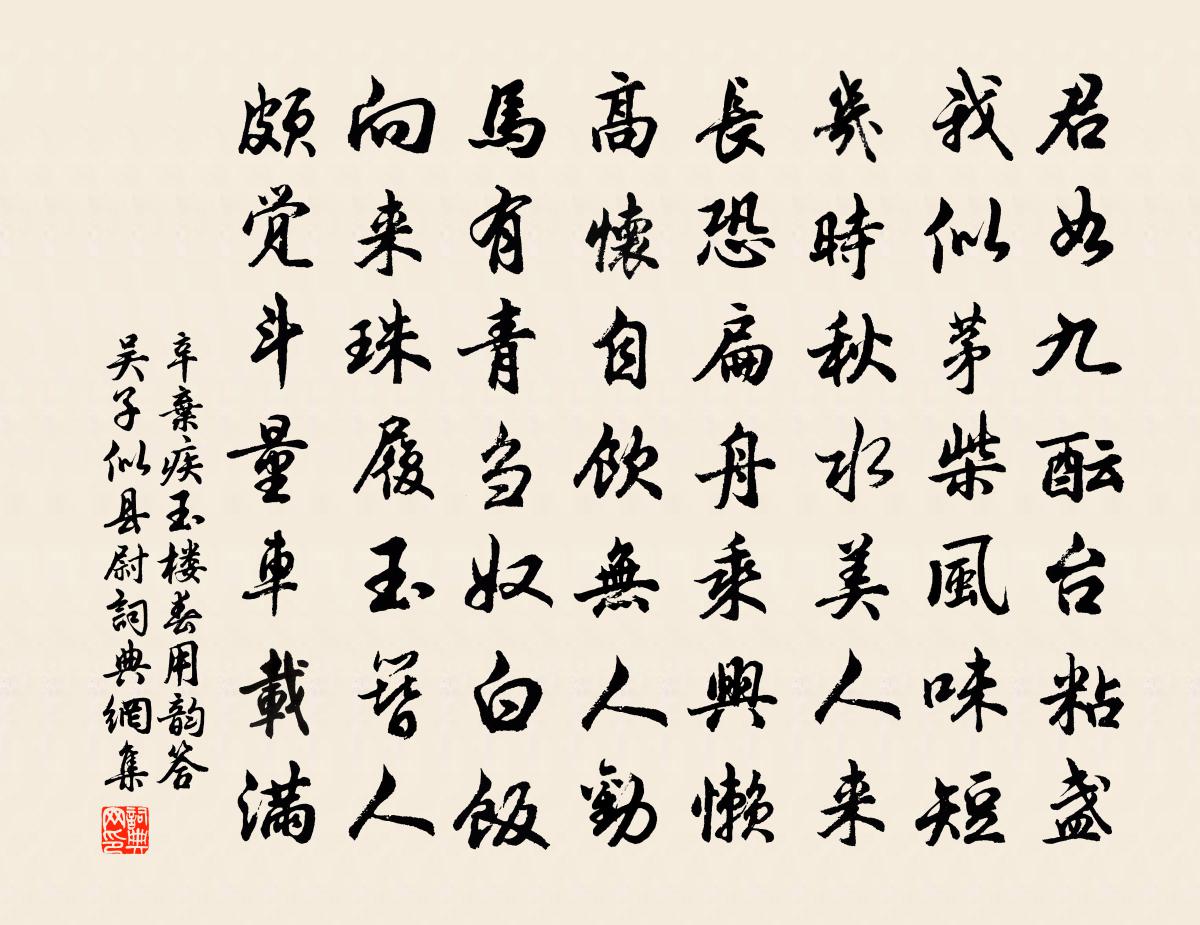 君如九醖台粘盞
我似茅柴風味短
幾時秋水美人来
長恐扁舟乘興懶
高懷自飲無人勸
馬有青芻奴白飯
向来珠履玉簪人
頗覚斗量車載满
辛棄疾玉楼春用韵答
吴子似县尉詞典網集
詞典
网印